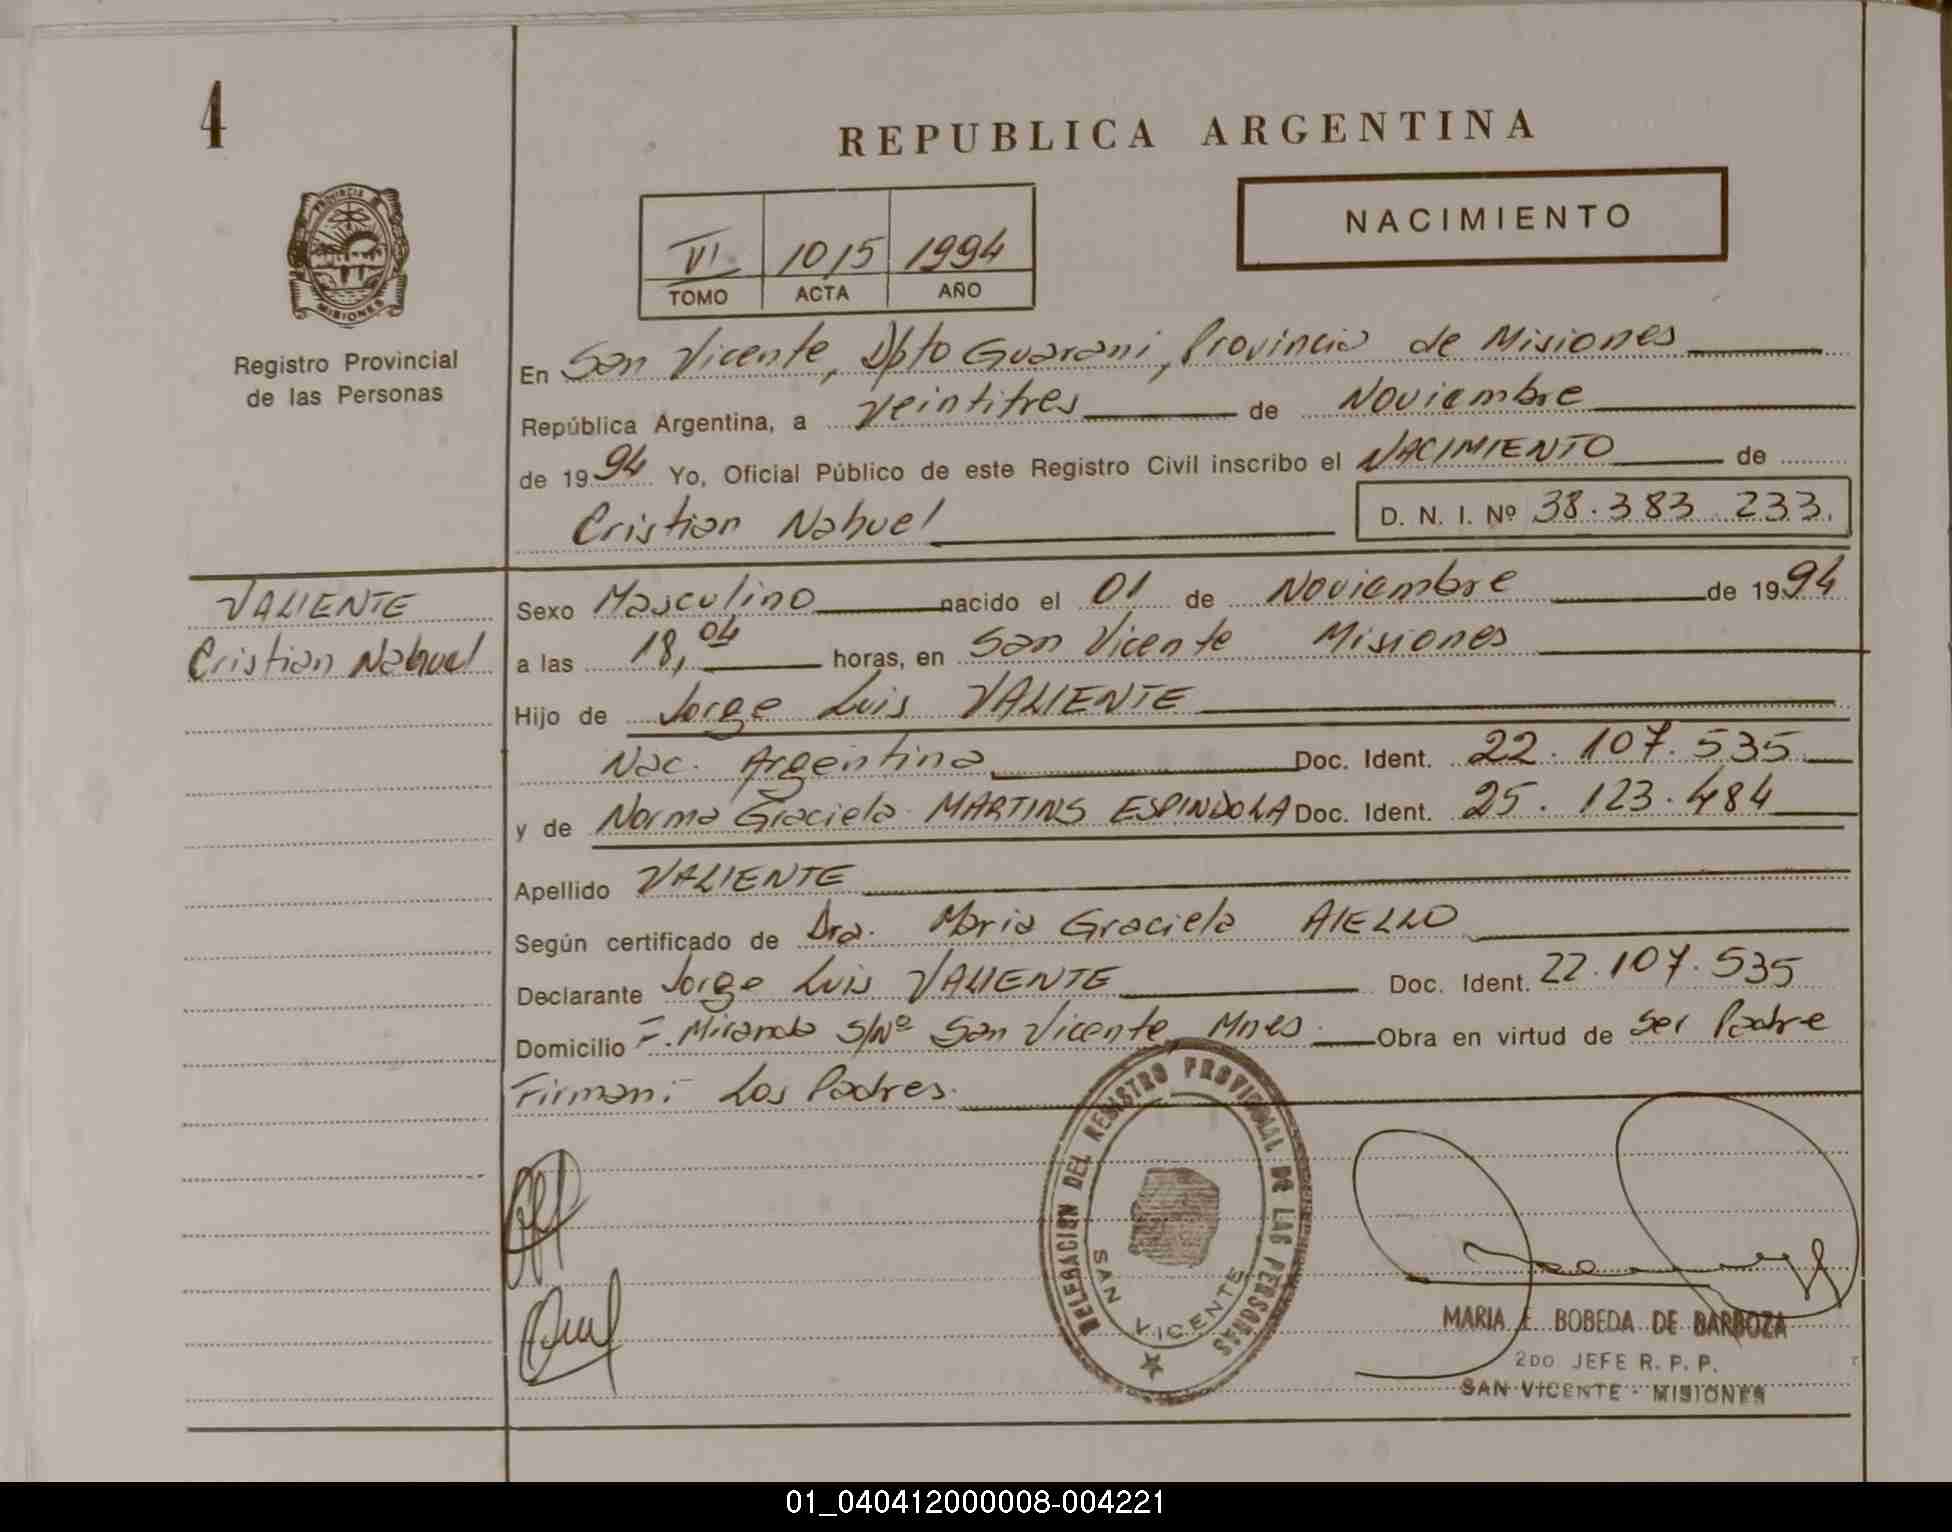 4
REPUBLICA ARGENTINA
NACIMIENTO
PROVINCIA DE MISIONES
VI 1015 1994
TOMO ACTA AÑO
Registro Provincial
de las Personas
En San Vicente, Dpto Guarani, Provincia de Misiones
República Argentina, a veintitres de Noviembre
de 1994 Yo, Oficial Público de este Registro Civil inscribo el NACIMIENTO de
Cristian Nahuel D. N. I. Nº 38.383.233.
VALIENTE
Cristian Nahuel
Sexo Masculino nacido el 01 de Noviembre de 1994
a las 18,04 horas, en San Vicente Misiones
Hijo de Jorge Luis VALIENTE
Nac. Argentina Doc. Ident. 22.107.535
y de Norma Graciela MARTINS ESPINDOLA Doc. Ident. 25.123.484
Apellido VALIENTE
Según certificado de Dra. Maria Graciela AIELLO
Declarante Jorge Luis VALIENTE Doc. Ident. 22.107.535
Domicilio F. Miranda S/Nº San Vicente, Mnes. Obra en virtud de ser Padre
Firman: Los Padres.
DELEGACION DEL REGISTRO PROVINCIAL DE LAS PERSONAS
SAN VICENTE
MARIA E. BOBEDA DE BARBOZA
2DO JEFE R. P. P.
SAN VICENTE - MISIONES
01_040412000008-004221